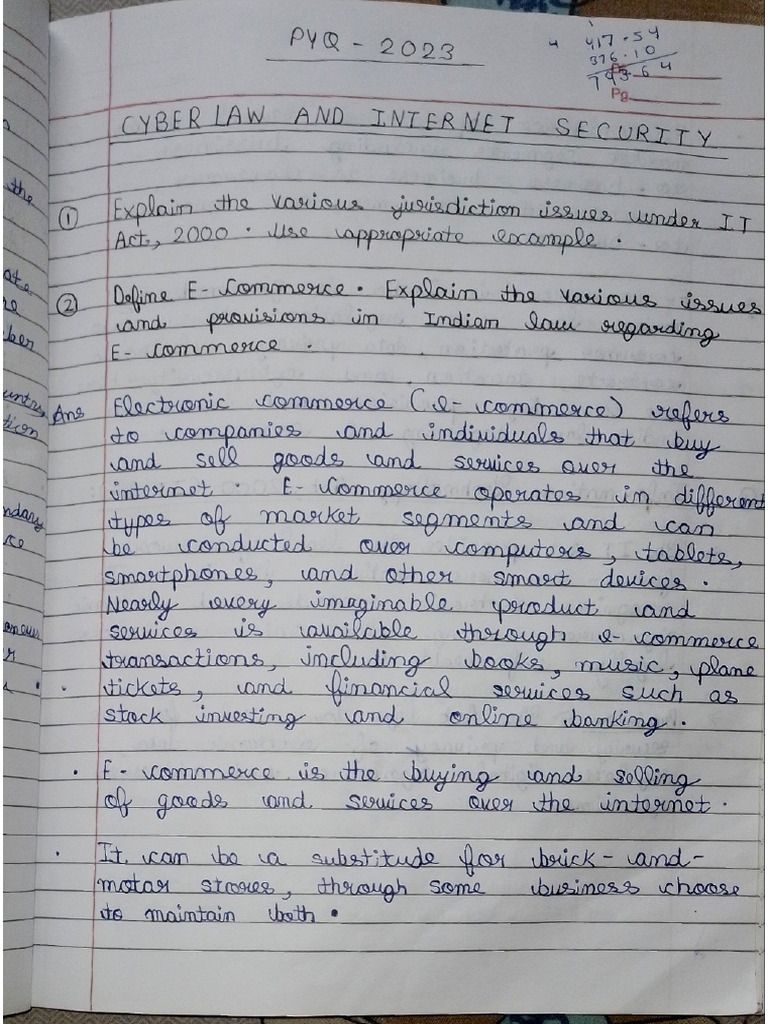 PYQ - 2023
417.54
376.10
793.64
Pg
CYBER LAW AND INTERNET SECURITY
① Explain the various jurisdiction issues under IT
Act, 2000. Use appropriate example.
② Define E-Commerce. Explain the various issues
and provisions in Indian law regarding
E-commerce.
Ans Electronic commerce (e-commerce) refers
to companies and individuals that buy
and sell goods and services over the
internet. E-Commerce operates in different
types of market segments and can
be conducted over computers, tablets,
smartphones, and other smart devices.
Nearly every imaginable product and
services is available through e-commerce
transactions, including books, music, plane
tickets, and financial services such as
stock investing and online banking.
· E-commerce is the buying and selling
of goods and services over the internet.
· It can be a substitute for brick-and-
motar stores, through some business choose
to maintain both.
the